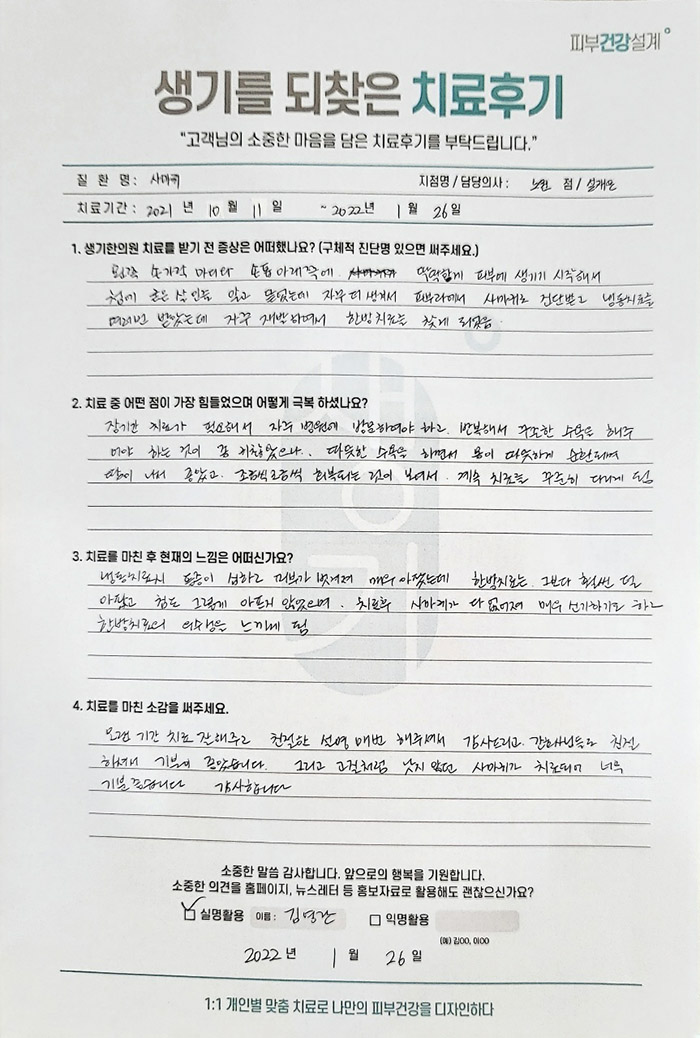 피부건강설계
생기를 되찾은 치료후기
"고객님의 소중한 마음을 담은 치료후기를 부탁드립니다."
질 환 명 : 사마귀 지점명 / 담당의사 : 노원 점 /
치료기간 : 2021 년 10 월 11 일 ~ 2022년 1 월 26 일
1. 생기한의원 치료를 받기 전 증상은 어떠했나요? (구체적 진단명 있으면 써주세요.)
손가락 마디와 손톱 아래쪽에 딱딱하게 피부에 생기기 시작해서
첨에 굳은살 인줄 알고 뜯었는데 자꾸 더 생겨서 피부과에서 사마귀로 진단받고 냉동치료를
여러번 받았는데 자꾸 재발하여서 한방치료를 찾게 되었음.
2. 치료 중 어떤 점이 가장 힘들었으며 어떻게 극복 하셨나요?
장기간 치료가 필요해서 자주 병원에 방문하여야 하고. 반복해서 꾸준한 수욕을 해주
어야 하는 것이 좀 귀찮았으나.. 따뜻한 수욕을 하면서 몸이 따뜻하게 순환되며
땀이 나서 좋았고. 조금씩 조금씩 회복되는 것이 보여서. 계속 치료를 꾸준히 다니게 됨
3. 치료를 마친 후 현재의 느낌은 어떠신가요?
냉동치료시 통증이 심하고 피부가 벗겨져 매우 아팠는데 한방치료는 그보다 훨씬 덜
아팠고 침도 그렇게 아프지 않았으며. 치료후 사마귀가 다 없어져 매우 신기하기도 하고
한방치료의 우수성을 느끼게 됨
4. 치료를 마친 소감을 써주세요.
오랜 기간 치료 잘해주고 친절한 설명 매번 해주셔서 감사드리고. 간호사님들도 친절
하셔서 기분이 좋았습니다. 그리고 고질처럼 낫지 않던 사마귀가 치료되어 너무
기분 좋습니다 감사합니다
소중한 말씀 감사합니다. 앞으로의 행복을 기원합니다.
소중한 의견을 홈페이지, 뉴스레터 등 홍보자료로 활용해도 괜찮으신가요?
실명활용 이름 : 익명활용
(예) 김OO, 이OO
2022 년 1 월 26 일
1:1 개인별 맞춤 치료로 나만의 피부건강을 디자인하다